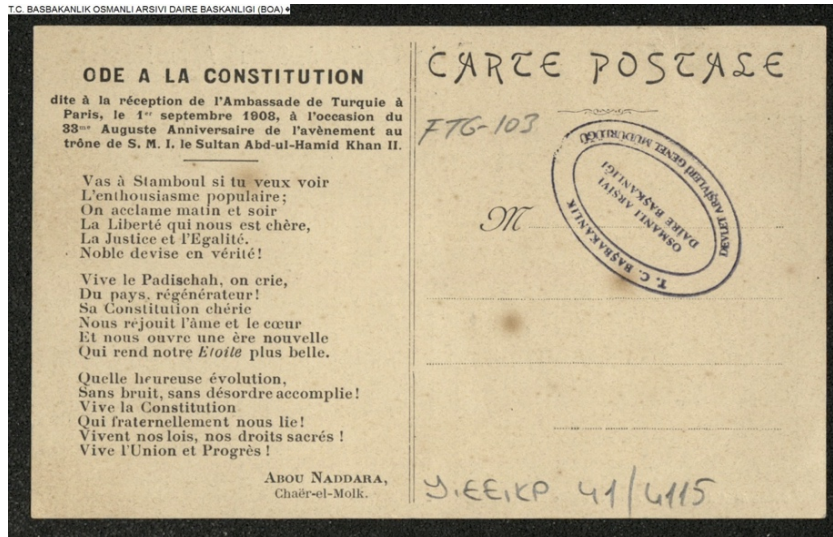 T.C. BASBAKANLIK OSMANLI ARSIVI DAIRE BASKANLIGI (BOA)
ODE A LA CONSTITUTION
dite à la réception de l'Ambassade de Turquie à
Paris, le 1er septembre 1908, à l'occasion du
33me Auguste Anniversaire de l'avènement au
trône de S. M. I. le Sultan Abd-ul-Hamid Khan II.
Vas à Stamboul si tu veux voir
L'enthousiasme populaire;
On acclame matin et soir
La Liberté qui nous est chère,
La Justice et l'Egalité.
Noble devise en vérité!
Vive le Padischah, on crie,
Du pays. régénérateur!
Sa Constitution chérie
Nous réjouit l'âme et le cœur
Et nous ouvre une ère nouvelle
Qui rend notre Etoile plus belle.
Quelle heureuse évolution,
Sans bruit, sans désordre accomplie!
Vive la Constitution
Qui fraternellement nous lie!
Vivent nos lois, nos droits sacrés !
Vive l'Union et Progrès !
ABOU NADDARA,
Chaër-el-Molk.
CARTE POSTALE
FTG-103
DEVLET ARŞİVLERİ GENEL MÜDÜRLÜĞÜ
OSMANLI ARŞİVİ
DAİRE BAŞKANLIĞI
T. C. BAŞBAKANLIK
M
Y.EE.KP 41/4115